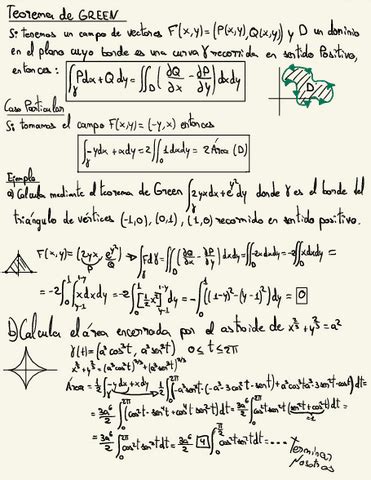 Teorema de GREEN
Si tenemos un campo de vectores F(x,y)=(P(x,y),Q(x,y)) y D un dominio
en el plano cuyo borde es una curva γ recorrida en sentido Positivo,
entonces: ∫γ Pdx+Qdy = ∬D (∂Q/∂x - ∂P/∂y) dxdy
D
Caso Particular
Si tomamos el campo F(x,y)=(-y,x) entonces
∫γ -ydx+xdy = 2∬D 1dxdy = 2 Área (D)
Ejemplo
a) Calcula mediante el teorema de Green ∫γ 2yxdx+e^y²dy donde γ es el borde del
triángulo de vértices (-1,0), (0,1), (1,0) recorrido en sentido positivo.
F(x,y)=(2yx, e^y²) ⇒ ∫γ Fdγ = ∬D (∂Q/∂x - ∂P/∂y) dxdy = ∬D -2xdxdy = -2∬D xdxdy =
P Q
= -2∫₀¹∫_{y-1}^{1-y} xdxdy = -2∫₀¹ [½x²]_{y-1}^{1-y} dy = -∫₀¹ ((1-y)²-(y-1)²)dy = 0
b) Calcula el área encerrada por el astroide de x^⅔+y^⅔=a²
γ(t)=(a³cos³t, a³sen³t) 0≤t≤2π
Área = ½∫γ -ydx+xdy
= 3a⁶/2
Terminar
vosotros